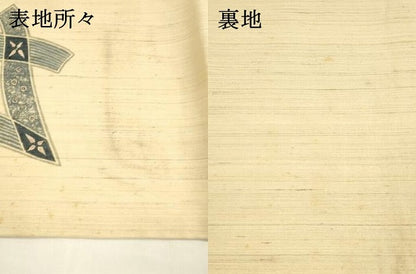 表地所々
裏地